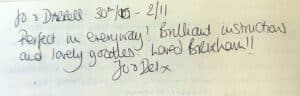 Jo & DARRELL 30th/10 - 2/11
Perfect in everyway! Brilliant instructions
and lovely goodies. Loved Brixham!!
Jo & Del x